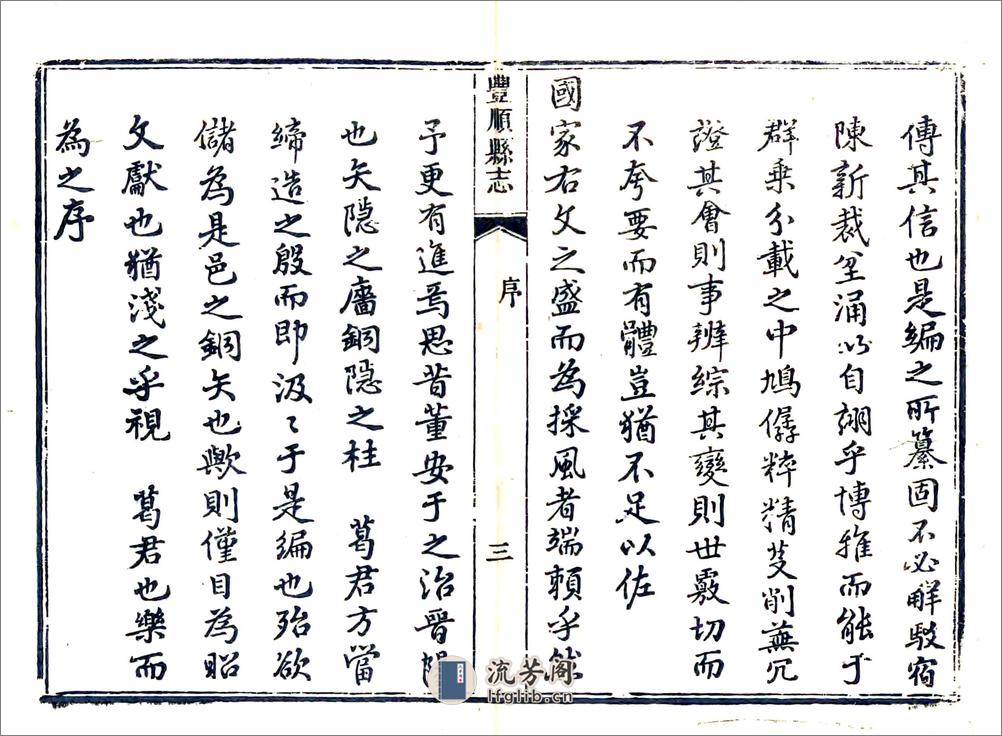 傳其信也是編之所纂固不必觧駁宿
陳新裁坌涌以自翊乎博雅而能于
群乗分載之中鳩僝粹精芟削蕪冗
證其會則事辨綜其變則世覈切而
不夸要而有體豈猶不足以佐
國家右文之盛而為採風者端賴乎
豐順縣志
序
三
予更有進焉思昔董安于之治晉陽
也矢隠之廧銅隠之柱 葛君方當
締造之殷而即汲〻于是編也殆欲
儲為是邑之銅矢也歟則僅目為昭
文獻也猶淺之乎視 葛君也樂而
為之序
流芳阁
lfglib.cn